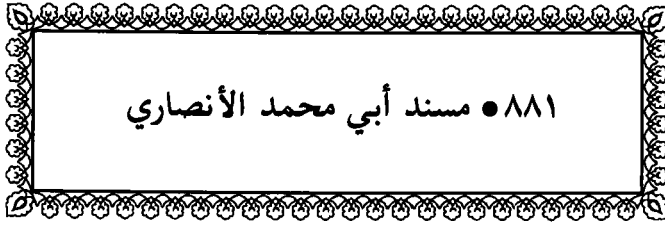 ٨٨١ ● مسند أبي محمد الأنصاري